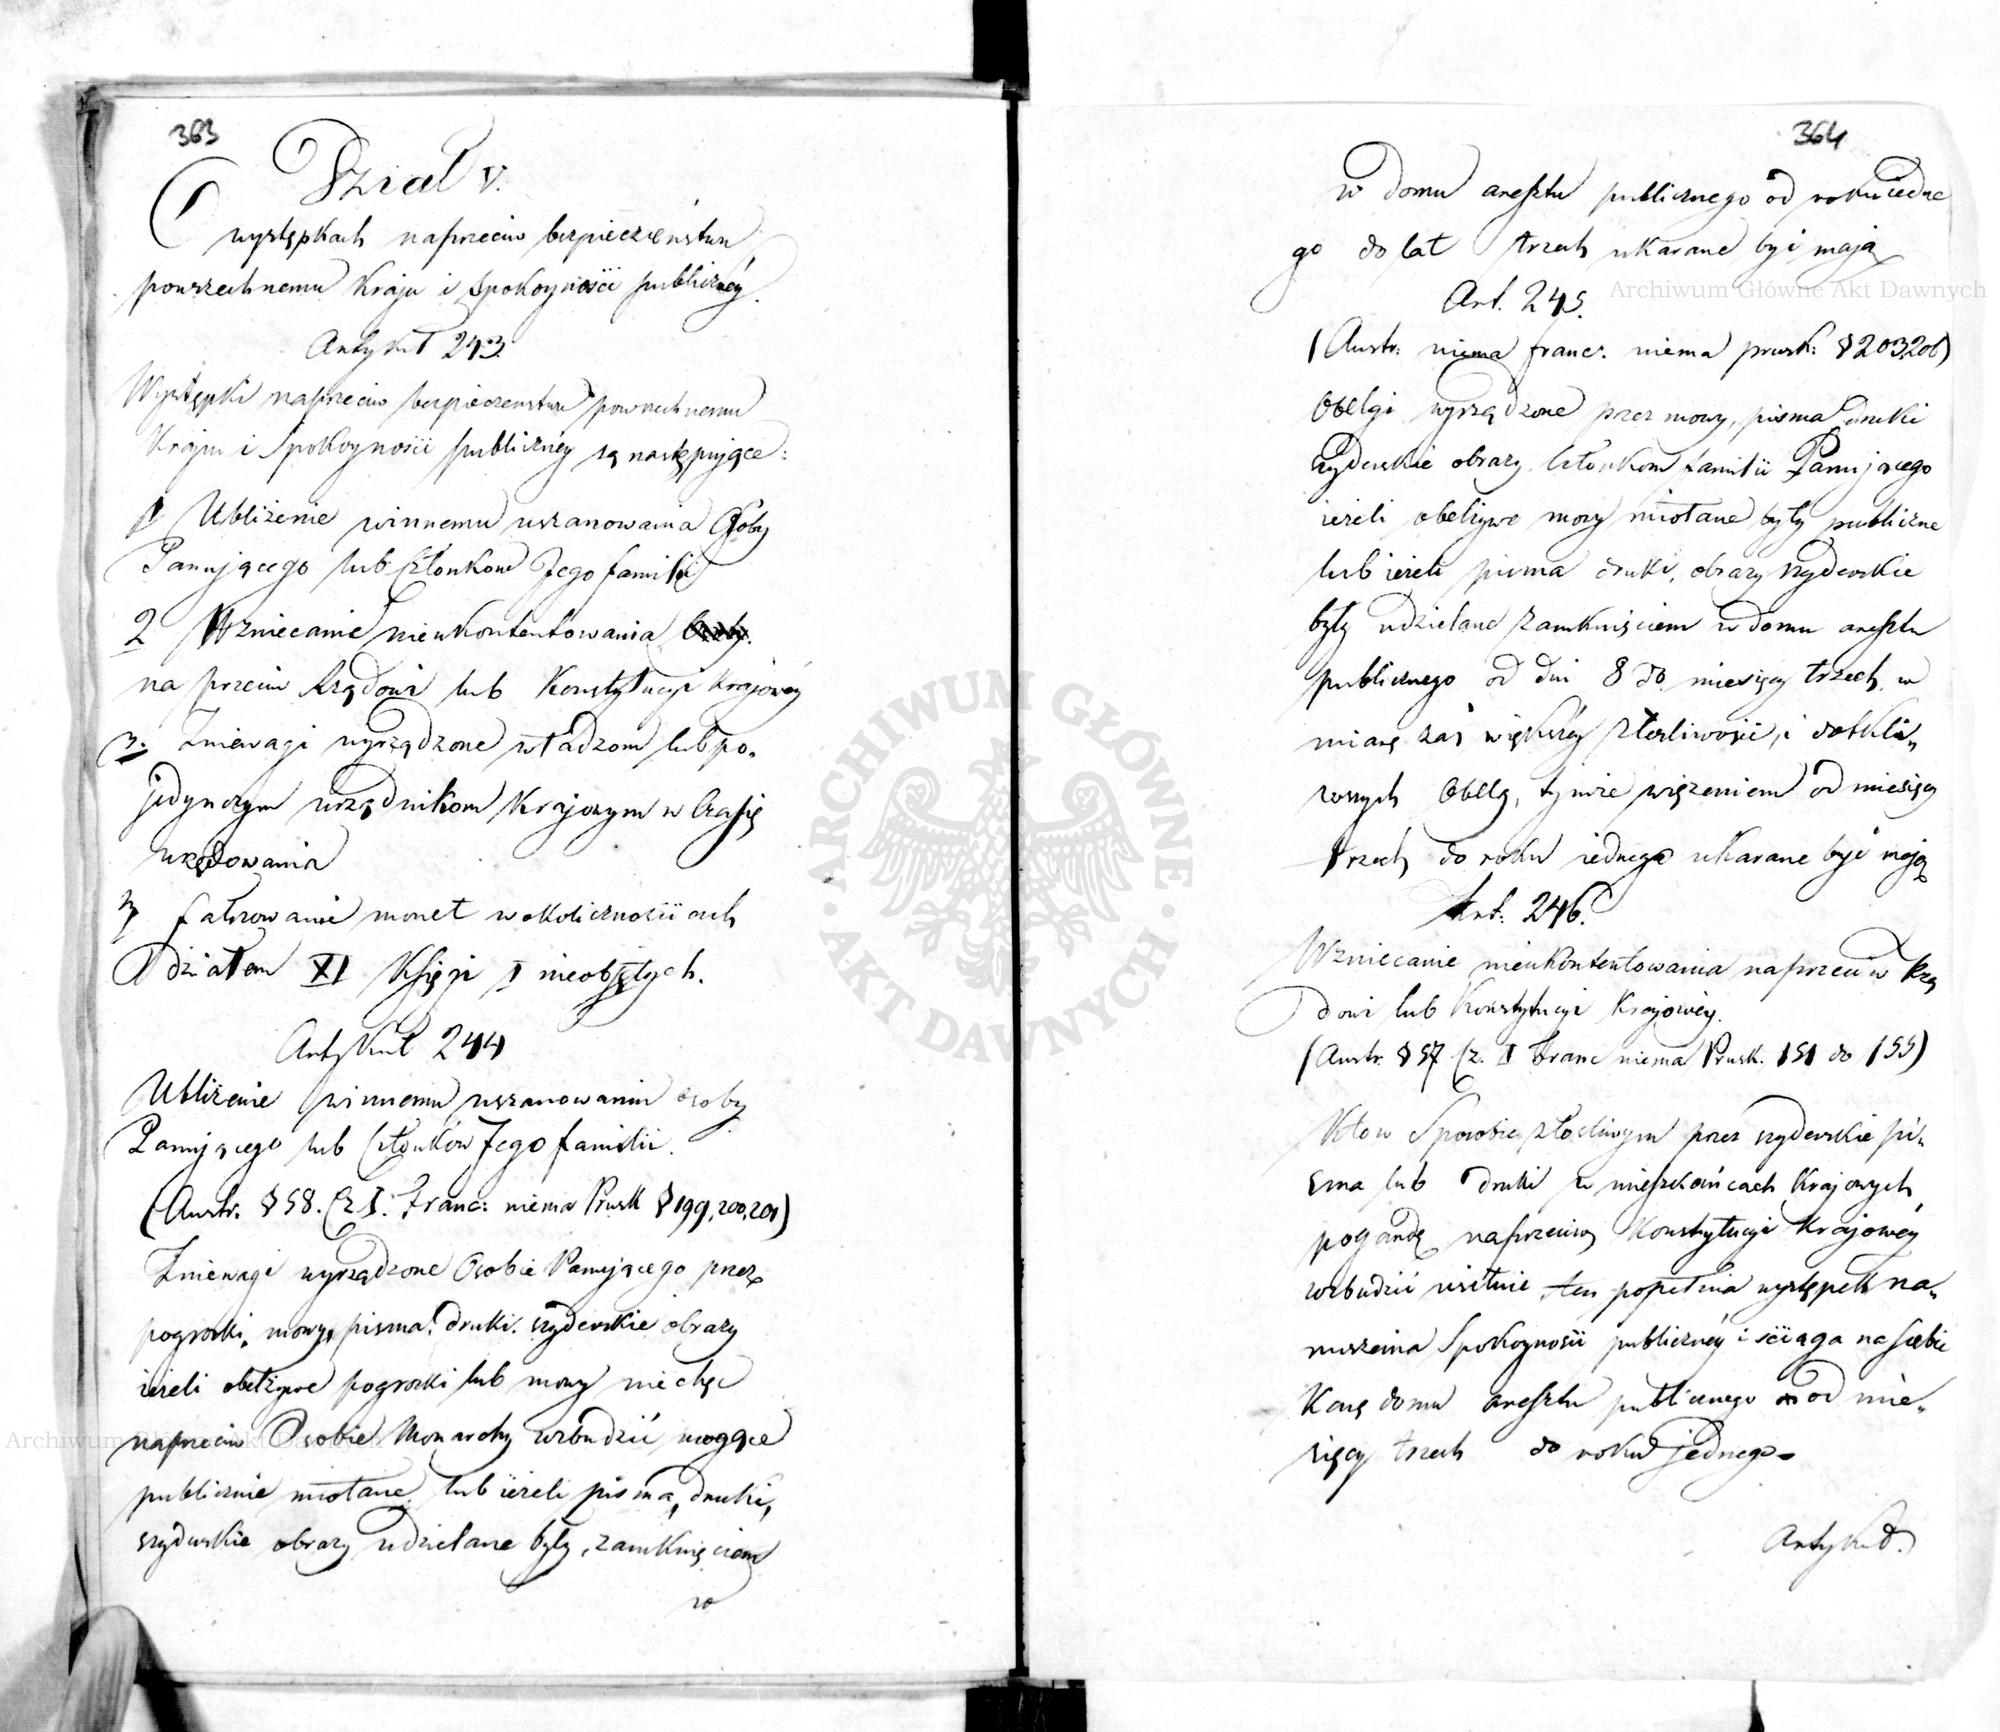 363
Dział V.
O występkach naprzeciw bezpieczeństwu
powszechnemu Kraju i spokoyności publiczney.
Artykuł 243.
Występki naprzeciw bezpieczenstwu powszechnemu
Kraju i Spokoyności publiczney są następujące:
1 Ubliżenie winnemu uszanowania Osoby
Panującego lub Członków Jego familii
2 Wzniecanie nieukontentowania
na przeciw Rządowi lub Konstytucyi krajowey
3. Zniewagi wyrządzone władzom lub po„
jedynczym urzędnikom Krajowym w Czasie
urzędowania
4 fałszowanie monet w okolicznościach
Działem XI Księgi I nieobjętych.
Artykuł 244
Ubliżenie winnemu uszanowaniu osoby
Panującego lub Członków Jego familii.
(Austr. § 58. Cz. I. Franc: niema Prusk § 199, 200, 201)
Zniewagi wyrządzone Osobie Panującego przez
pogrozki, mowy, pisma, druki, szyderskie obrazy
ieżeli obelżywe pogrozki lub mowy niechęć
naprzeciw Osobie Monarchy wzbudzić mogące
publicznie miotane, lub ieżeli pisma, druki,
szyderskie obrazy udzielane były, zamknięciem
w
364
w domu aresztu publicznego od roku iedne
go do lat trzech ukarane być mają
Art. 245.
(Austr: niema franc: niema prusk: § 203 206)
Obelgi wyrządzone przez mowy, pisma druki
szyderskie obrazy Członkom familii Panującego
ieżeli obelżywe mowy miotane były publiczne
lub ieżeli pisma druki, obrazy szyderskie
były udzielane zamknięciem w domu aresztu
publicznego od dni 8 do miesięcy trzech, w
miarę zaś większey złośliwości, i dotkli„
wszych Obelg, tymże więzieniem od miesięcy
trzech do roku iednego ukarane być mają
Art. 246.
Wzniecanie nieukontentowania naprzeciw Rzą
dowi lub Konstytucyi Krajowey.
(Austr. § 57 Cz. I Franc niema Prusk. 151 do 155)
Kto w Sposobie złośliwym przez szyderskie pi„
sma lub druki w mieszkańcach Krajowych
pogardę naprzeciw Konstytucyi Krajowey
wzbudzić usiłuie, ten popełnia występek na„
ruszenia Spokoyności publiczney i ściąga na siebie
Karę domu aresztu publicznego od mie„
sięcy trzech do roku jednego
Artykuł.
Archiwum Główne Akt Dawnych
Archiwum Główne Akt Dawnych
ARCHIWUM GŁÓWNE
AKT DAWNYCH